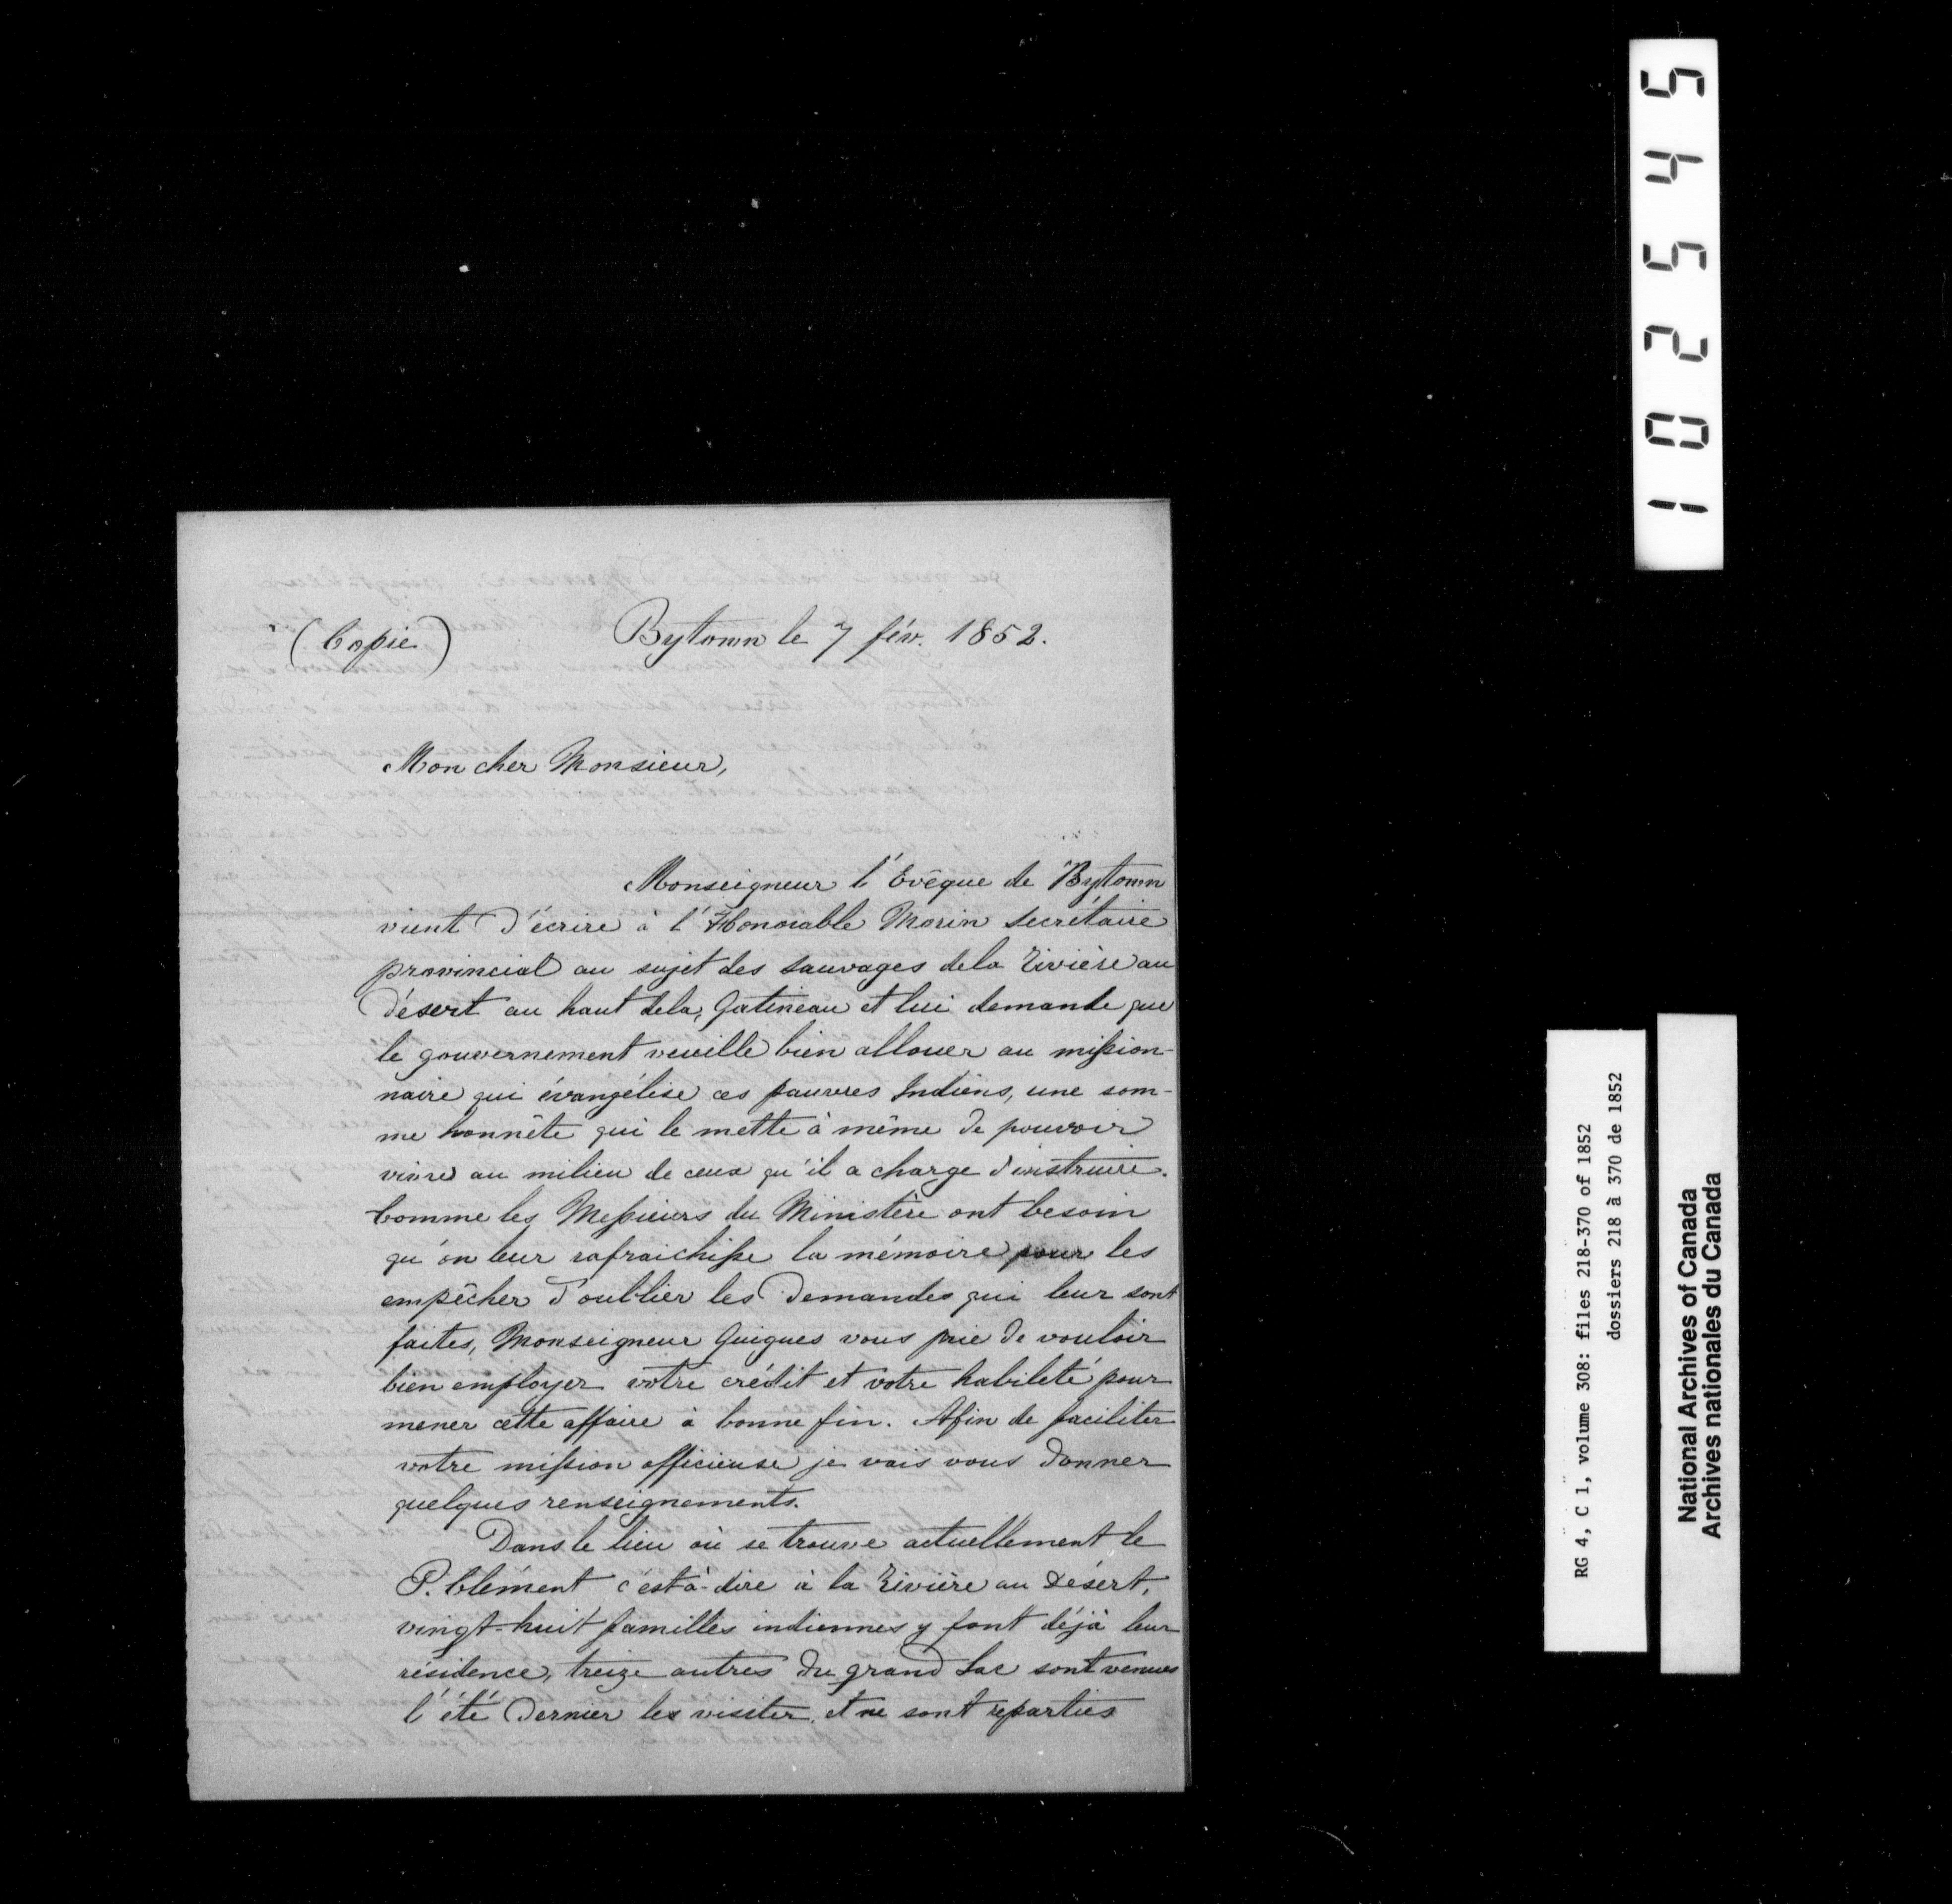 (Copie) Bytown le 7 fév. 1852.
Mon cher Monsieur,
Monseigneur l'Evêque de Bytown
vient d'écrire à l'Honorable Morin Secrétaire
provincial au sujet des Sauvages de la Rivière au
désert au haut de la Gatineau et lui demande que
le gouvernement veuille bien allouer au mission-
naire qui évangélise ces pauvres Indiens, une som-
me honnête qui le mette à même de pouvoir
vivre au milieu de ceux qu'il a charge d'instruire.
Comme les Messieurs du Ministère ont besoin
qu'on leur rafraichisse la mémoire pour les
empêcher d'oublier les demandes qui leur sont
faites, Monseigneur Guigues vous prie de vouloir
bien employer votre crédit et votre habileté pour
mener cette affaire à bonne fin. Afin de faciliter
votre mission officieuse je vais vous donner
quelques renseignements.
Dans le lieu où se trouve actuellement le
P. Clément c'est à-dire à la Rivière au Désert,
vingt-huit familles indiennes y font déjà leur
résidence, treize autres du grand Lac sont venues
l'été dernier les visiter, et ne sont reparties
102545
RG 4, C 1, volume 308: files 218-370 of 1852
dossiers 218 à 370 de 1852
National Archives of Canada
Archives nationales du Canada